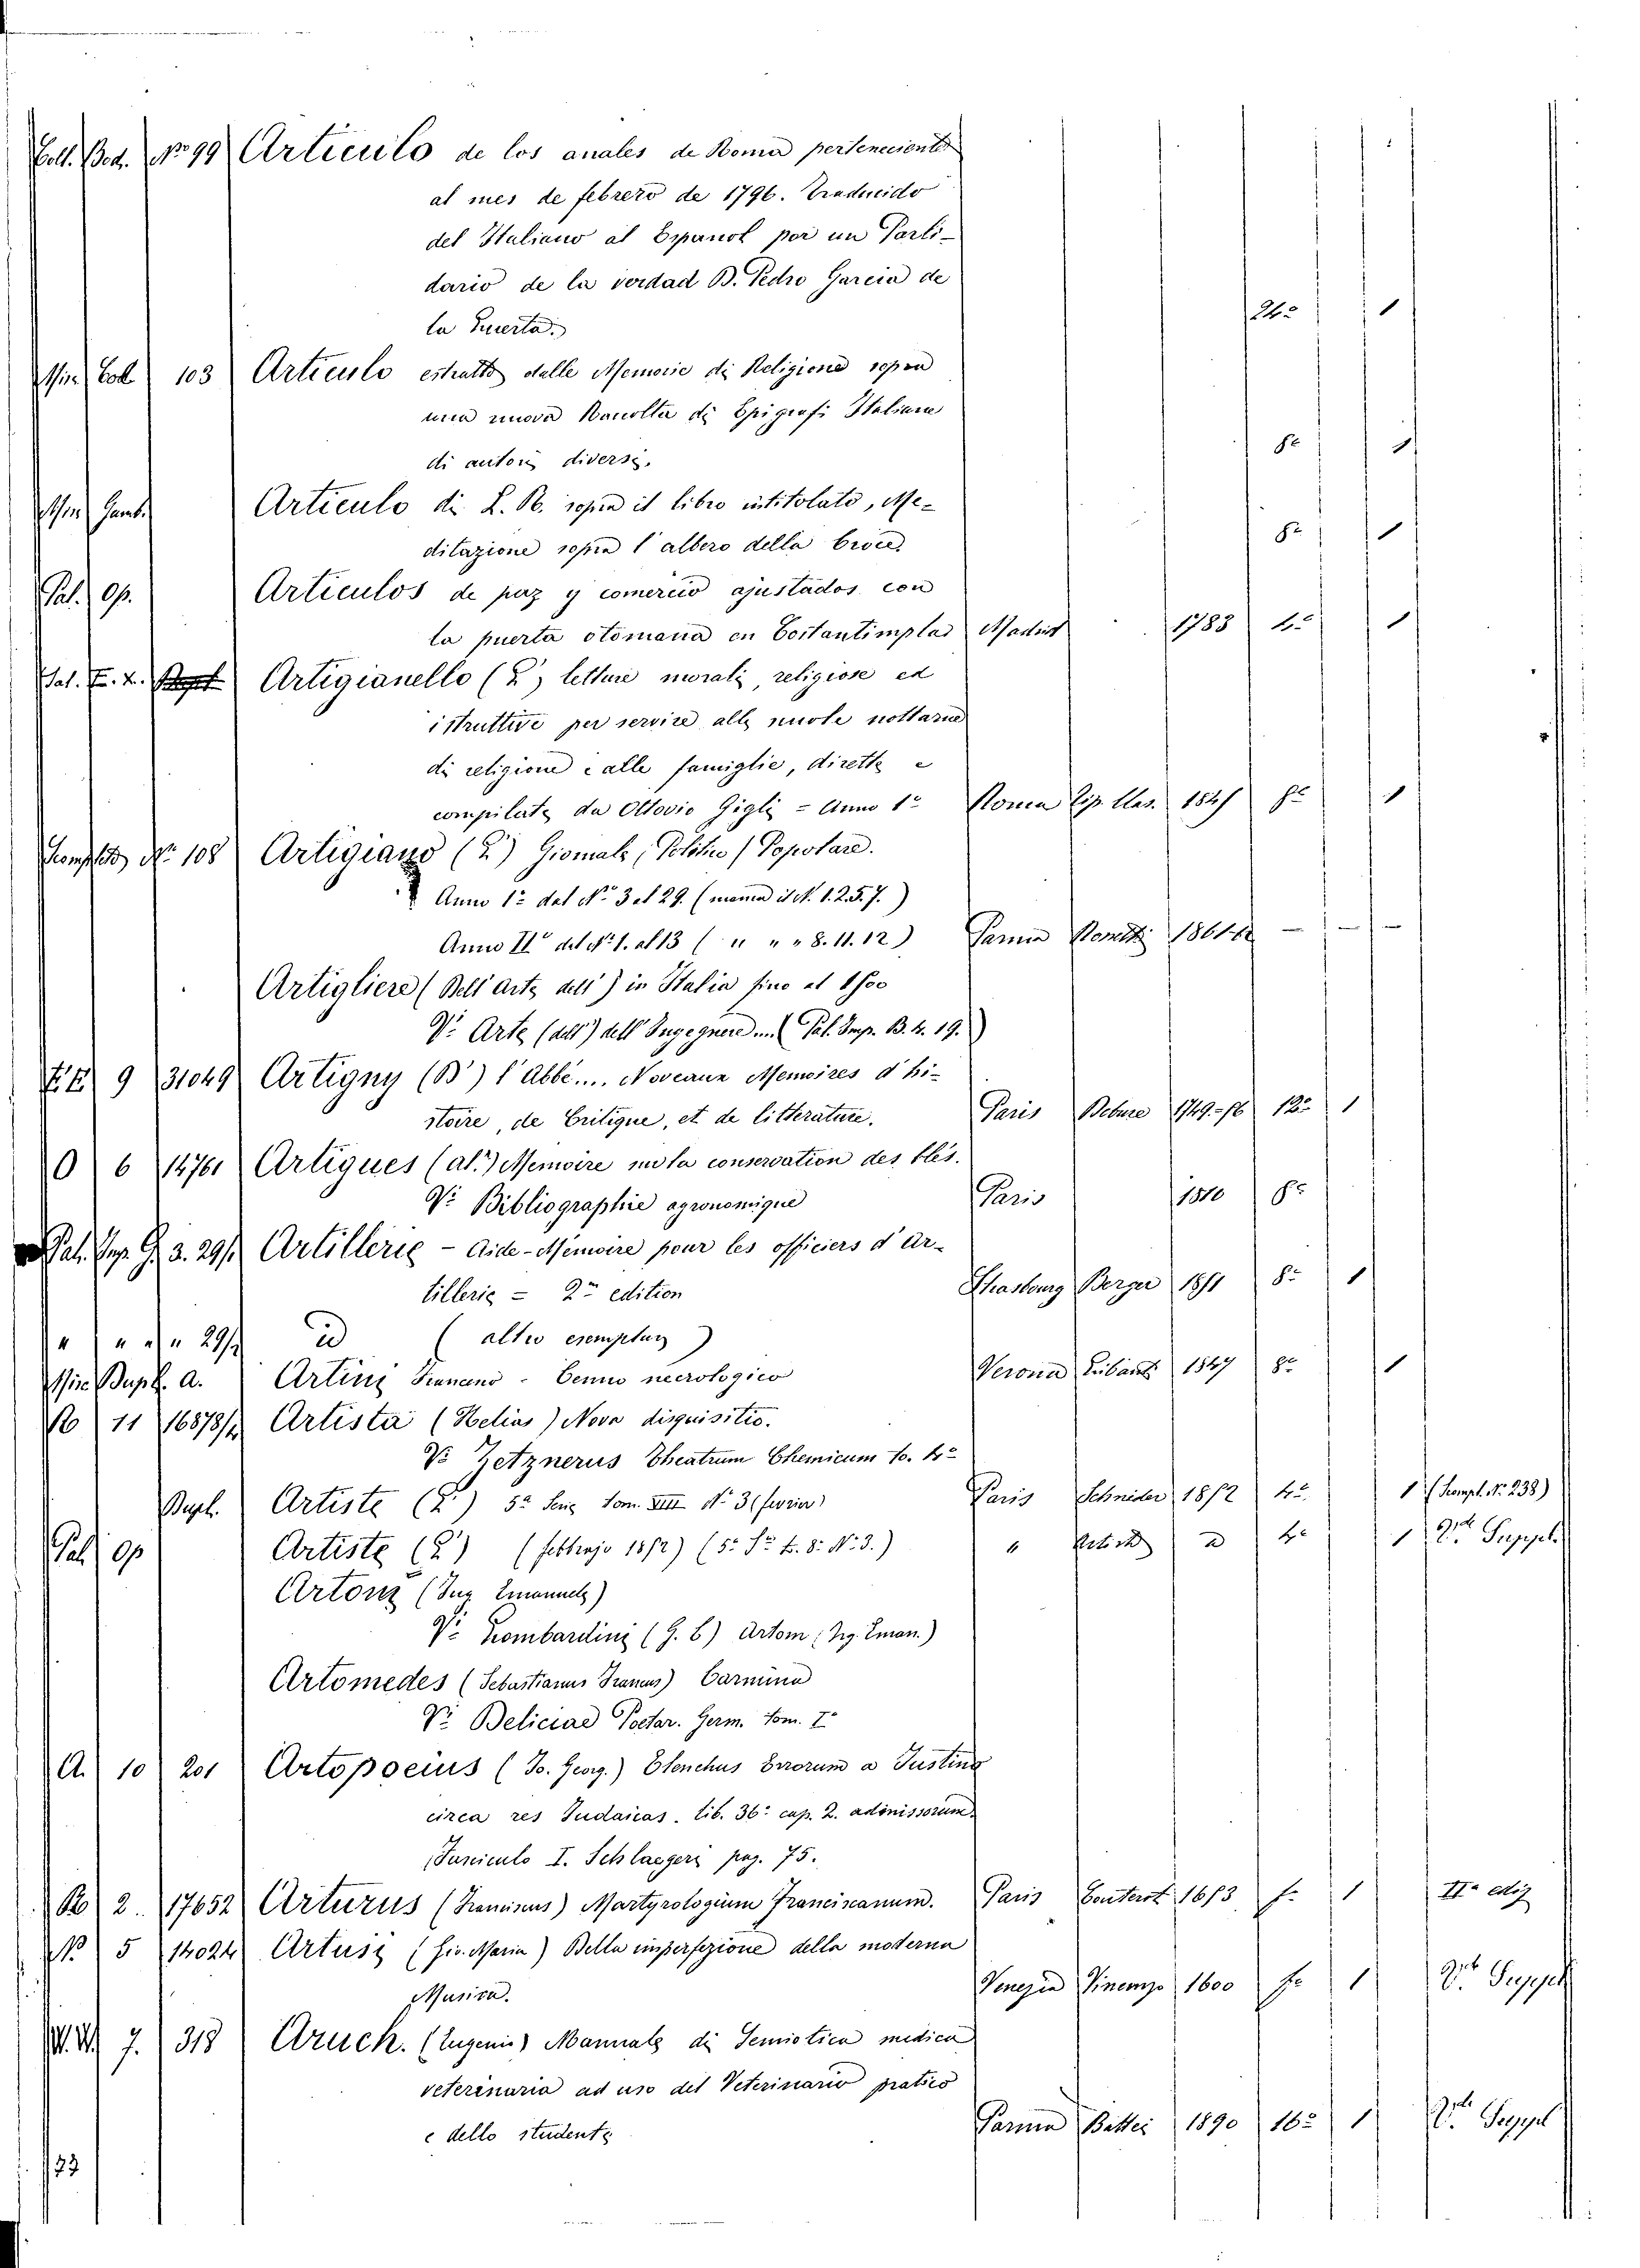 Coll. Bod. No 99 Articulo de los anales de Roma perteneciente
al mes de febrero de 1796. Traducido
del Italiano al Espanol por un Parti-
dario de la verdad D. Pedro Garcia de
la Huerta. 24o 1
Min. Coll 103 Articulo estratto dalle Memorie di Religione sopra
una nuova Raccolta di Epigrafi Italiane
di autori diversi. 8o 1
Min. Gamb. Articulo di L. B. sopra il libro intitolato, Me-
ditazione sopra l'albero della Croce 8o 1
Pal. Op. Articulos de paz y comercio ajustados con
la puerta otomana en Costantimplas Madrid 1783 4o 1
Pal. F. 2. Artigianello (L') letture morali, religiose ed
istruttive per servire alle scuole notturne
di religione e alle famiglie, dirette e
compilate da Ottavio Gigli = Anno 1o Roma Tip. Clas. 1847 8o 1
No 108 Artigiano (L') Giornale (Politico) Popolare.
Anno 1o dal No 3 al 29. (manca il N. 1.2.5.7.)
Anno IIo dal No 1. al 13 ( " " " 8. 11. 12) Parma 1861-62 — — —
Artigliere (Dell'arte dell') in Italia fino al 1500
Vo Arte (dell') dell'Ingegnere ... (Pal. Imp. B. 4. 19.)
9 31049 Artigny (D') l'Abbé.... Noveaux Memoires d'hi-
stoire, de Critique, et de litterature. Paris Debure 1749-56 12o 1
O 6 14761 Artigues (d') Memoire su la conservation des blés.
Vo Bibliographie agronomique Paris 1810 8o
Pal. Imp. G. 3. 29/1 Artillerie - Aide-Mémoire pour les officiers d'Ar-
tillerie = 2e edition Strasbourg Berger 1891 8o 1
" " " " 29/2 id (altro esemplar)
Min. Dupl. A. Artini - Cenno necrologico Verona Libanti 1847 8o 1
11 16878/4 Artista (Helias) Nova disquisitio.
Vo Zetznerus Theatrum Chemicum to. 4o
Dupl. Artiste (L') 5a Serie Tom. VIII No 3 (fevrier) Paris Schneider 1852 4o 1 (Compl. No 238)
Pal. Op Artiste (L') (febbrajo 1852) (5a Se t. 8o No 3.) " id 4o 1 Vo Suppl.
Artom (Ing Emanuele)
Vo Lombardini (G. B) Artom (Ing. Eman.)
Artomedes (Sebastianus Francus) Carmina
Vo Deliciae Poetar. Germ. tom. Io
A. 10 201 Artopoeius (Jo. Georg.) Elenchus Errorum a Justino
circa res Judaicas. lib. 36o cap. 2. admissorum.
Fasciculo I. Schlaegeri pag. 75.
2. 17652 Arturus (Franciscus) Martyrologium Franciscanum. Paris Couterot 1653 fo 1 IIa ediz
5 14024 Artusi (Gio. Maria) Della imperfezione della moderna
Musica. Venezia Vincenzo 1600 fo 1 Vo Suppl
7. 318 Aruch. (Eugenio) Manuale di Semiotica medica
veterinaria ad uso del Veterinario pratico
e dello studente Parma Battei 1890 16o 1 Vo Suppl